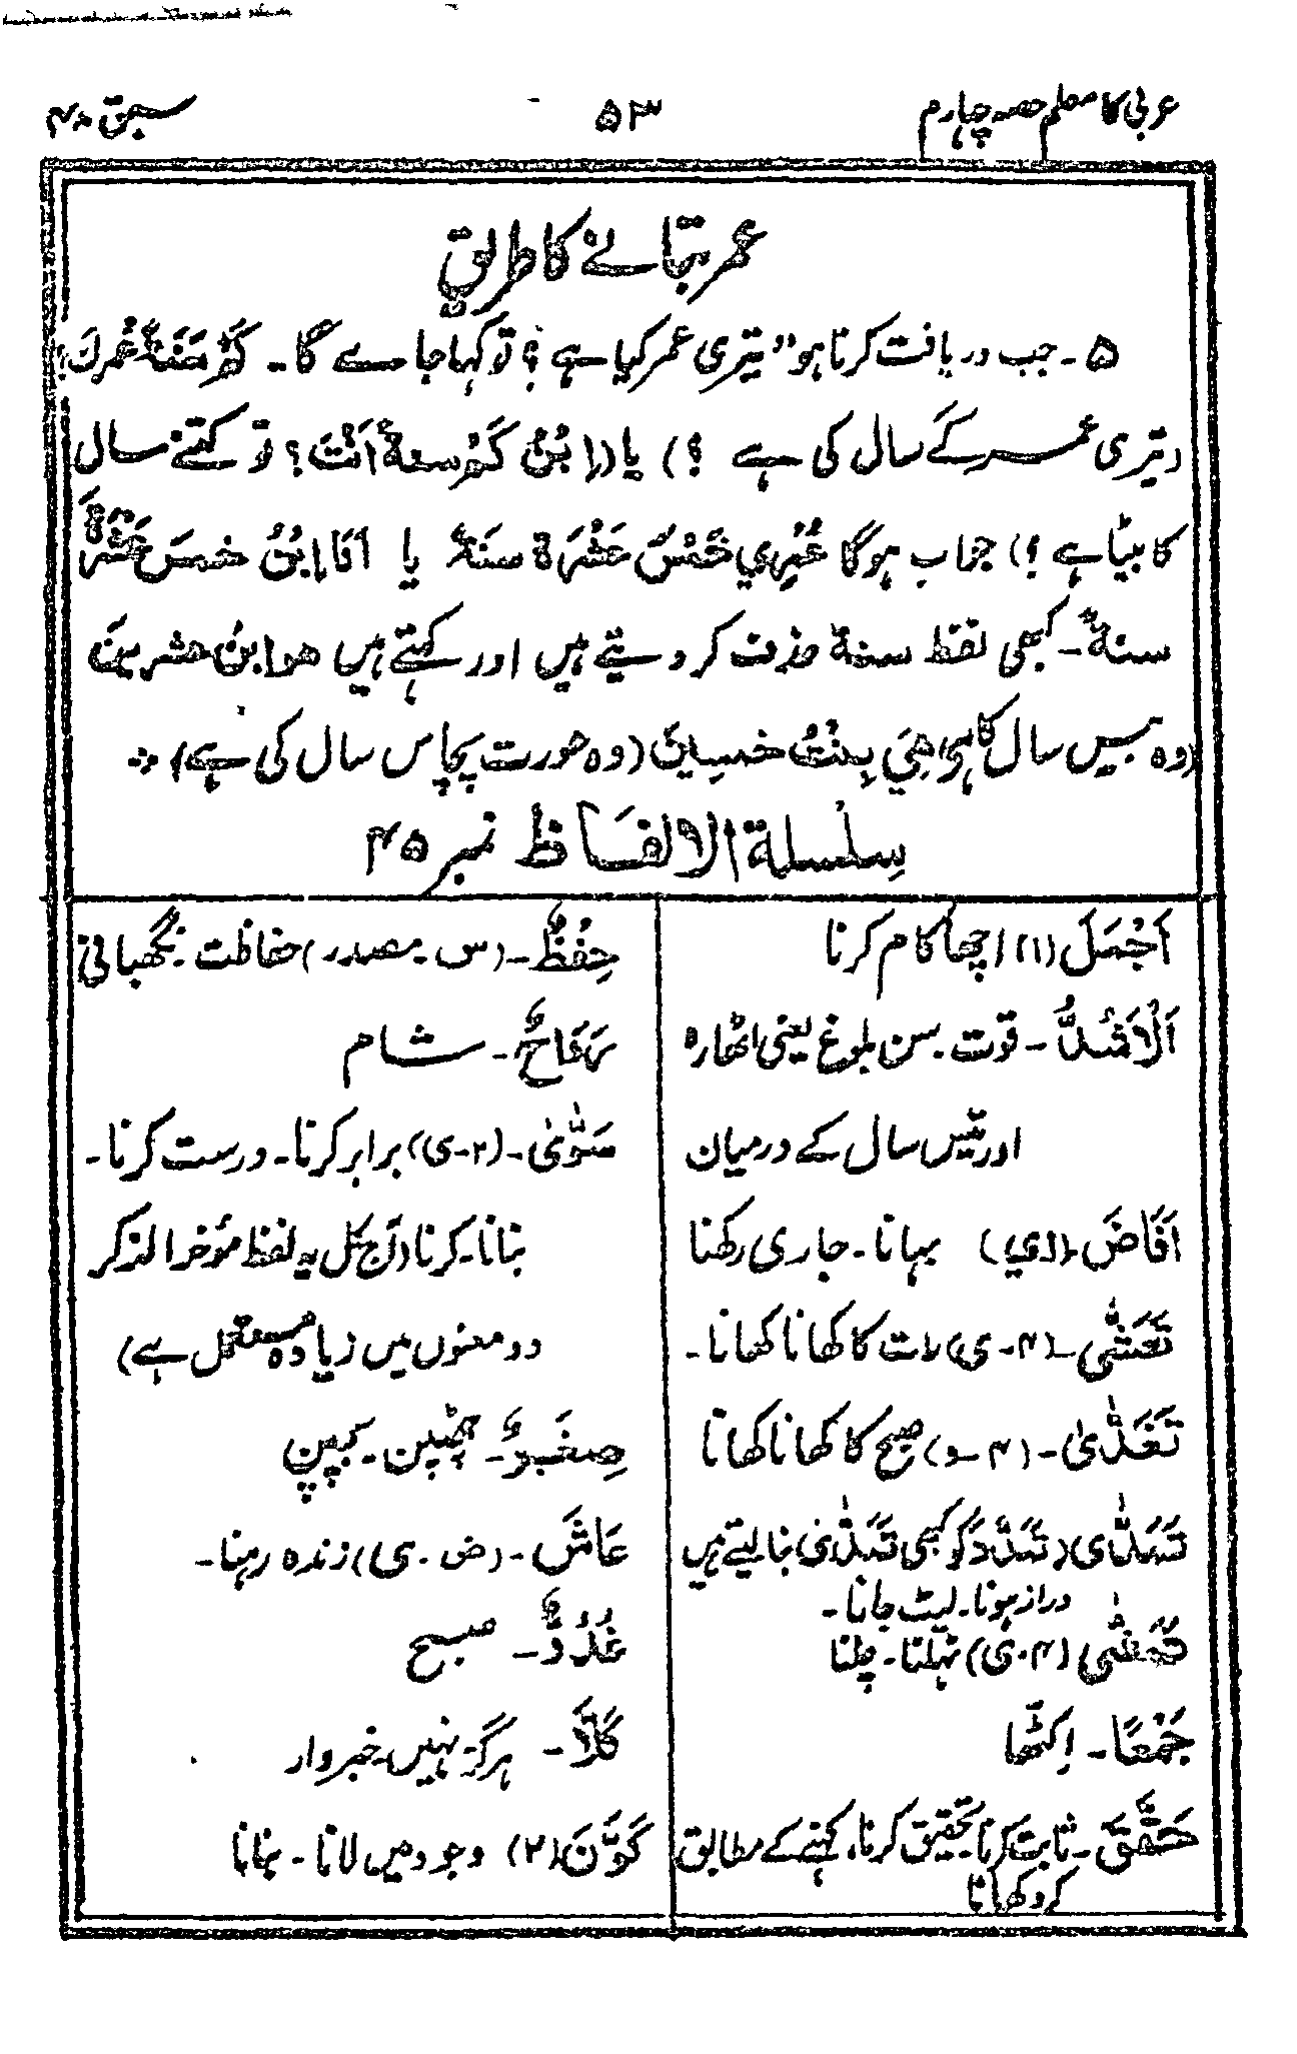 عربی کا معلم حصہ چہارم ۵۳ سبق ۴۸
عمر بتانے کا طریق
۵۔ جب دریافت کرنا ہو "تیری عمر کیا ہے ؟ تو کہا جاے گا۔ كَمْ سَنَةً عُمرُكَ؟
(تیری عمر کے سال کی ہے ؟) یا (اِبْنُ كَمْ سنةً اَنْتَ؟ تو کتنے سال
کا بیٹا ہے ؟) جواب ہوگا عُمْرِي خَمْسَ عَشْرَةَ سنَةً یا اَنَا اِبْنُ خمسَ عَشْرَةَ
سنةً۔ کبھی لفظ سنة حذف کر دیتے ہیں اور کہتے ہیں هو ابن عشرينَ
(وہ بیس سال کا ہی) هِيَ بِنْتُ خمسينَ (وہ عورت پچاس سال کی ہے) ؞
سِلسلة الالفَاظ نمبر ۴۵
اَجْمَلَ (۱) اچھا کام کرنا
اَلْاَشُدُّ ۔ قوت ۔ سن بلوغ یعنی اٹھارہ
اور تیس سال کے درمیان
اَفَاضَ ۔ (۱۔ي) بہانا ۔ جاری رکھنا
تَعَشّٰی ۔ (۴۔ی) رات کا کھانا کھانا ۔
تَغَدّٰیٰ ۔ (۴۔و) صبح کا کھانا کھانا
تَمَدّٰی (تَمَدَّدَ کو کبھی تَمَدّٰی بنا لیتے ہیں
دراز ہونا ۔ لیٹ جانا ۔
تَمَشّٰی (۴۔ی) ٹہلنا ۔ چلنا
جَمْعًا ۔ اِکٹھا
حَقَّقَ ۔ ثابت کرنا ۔ تحقیق کرنا، کہنے کے مطابق
کر دکھانا
حِفْظٌ ۔ (س ۔ مصدر) حفاظت ۔ نگہبانی
رَوَاحٌ ۔ شام
سَوّٰیٰ ۔ (۲۔ی) برابر کرنا ۔ درست کرنا ۔
بنانا ۔ کرنا (آج کل یہ لفظ مؤخر الذکر
دو معنوں میں زیادہ مستعمل ہے)
صِغَرٌ ۔ چھٹپن ۔ بچپن
عَاشَ ۔ (ض ۔ ی) زندہ رہنا ۔
غُدُوٌّ ۔ صبح
كَلَّا ۔ ہرگز نہیں ۔ خبردار
كَوَّنَ (۲) وجود میں لانا ۔ بنانا